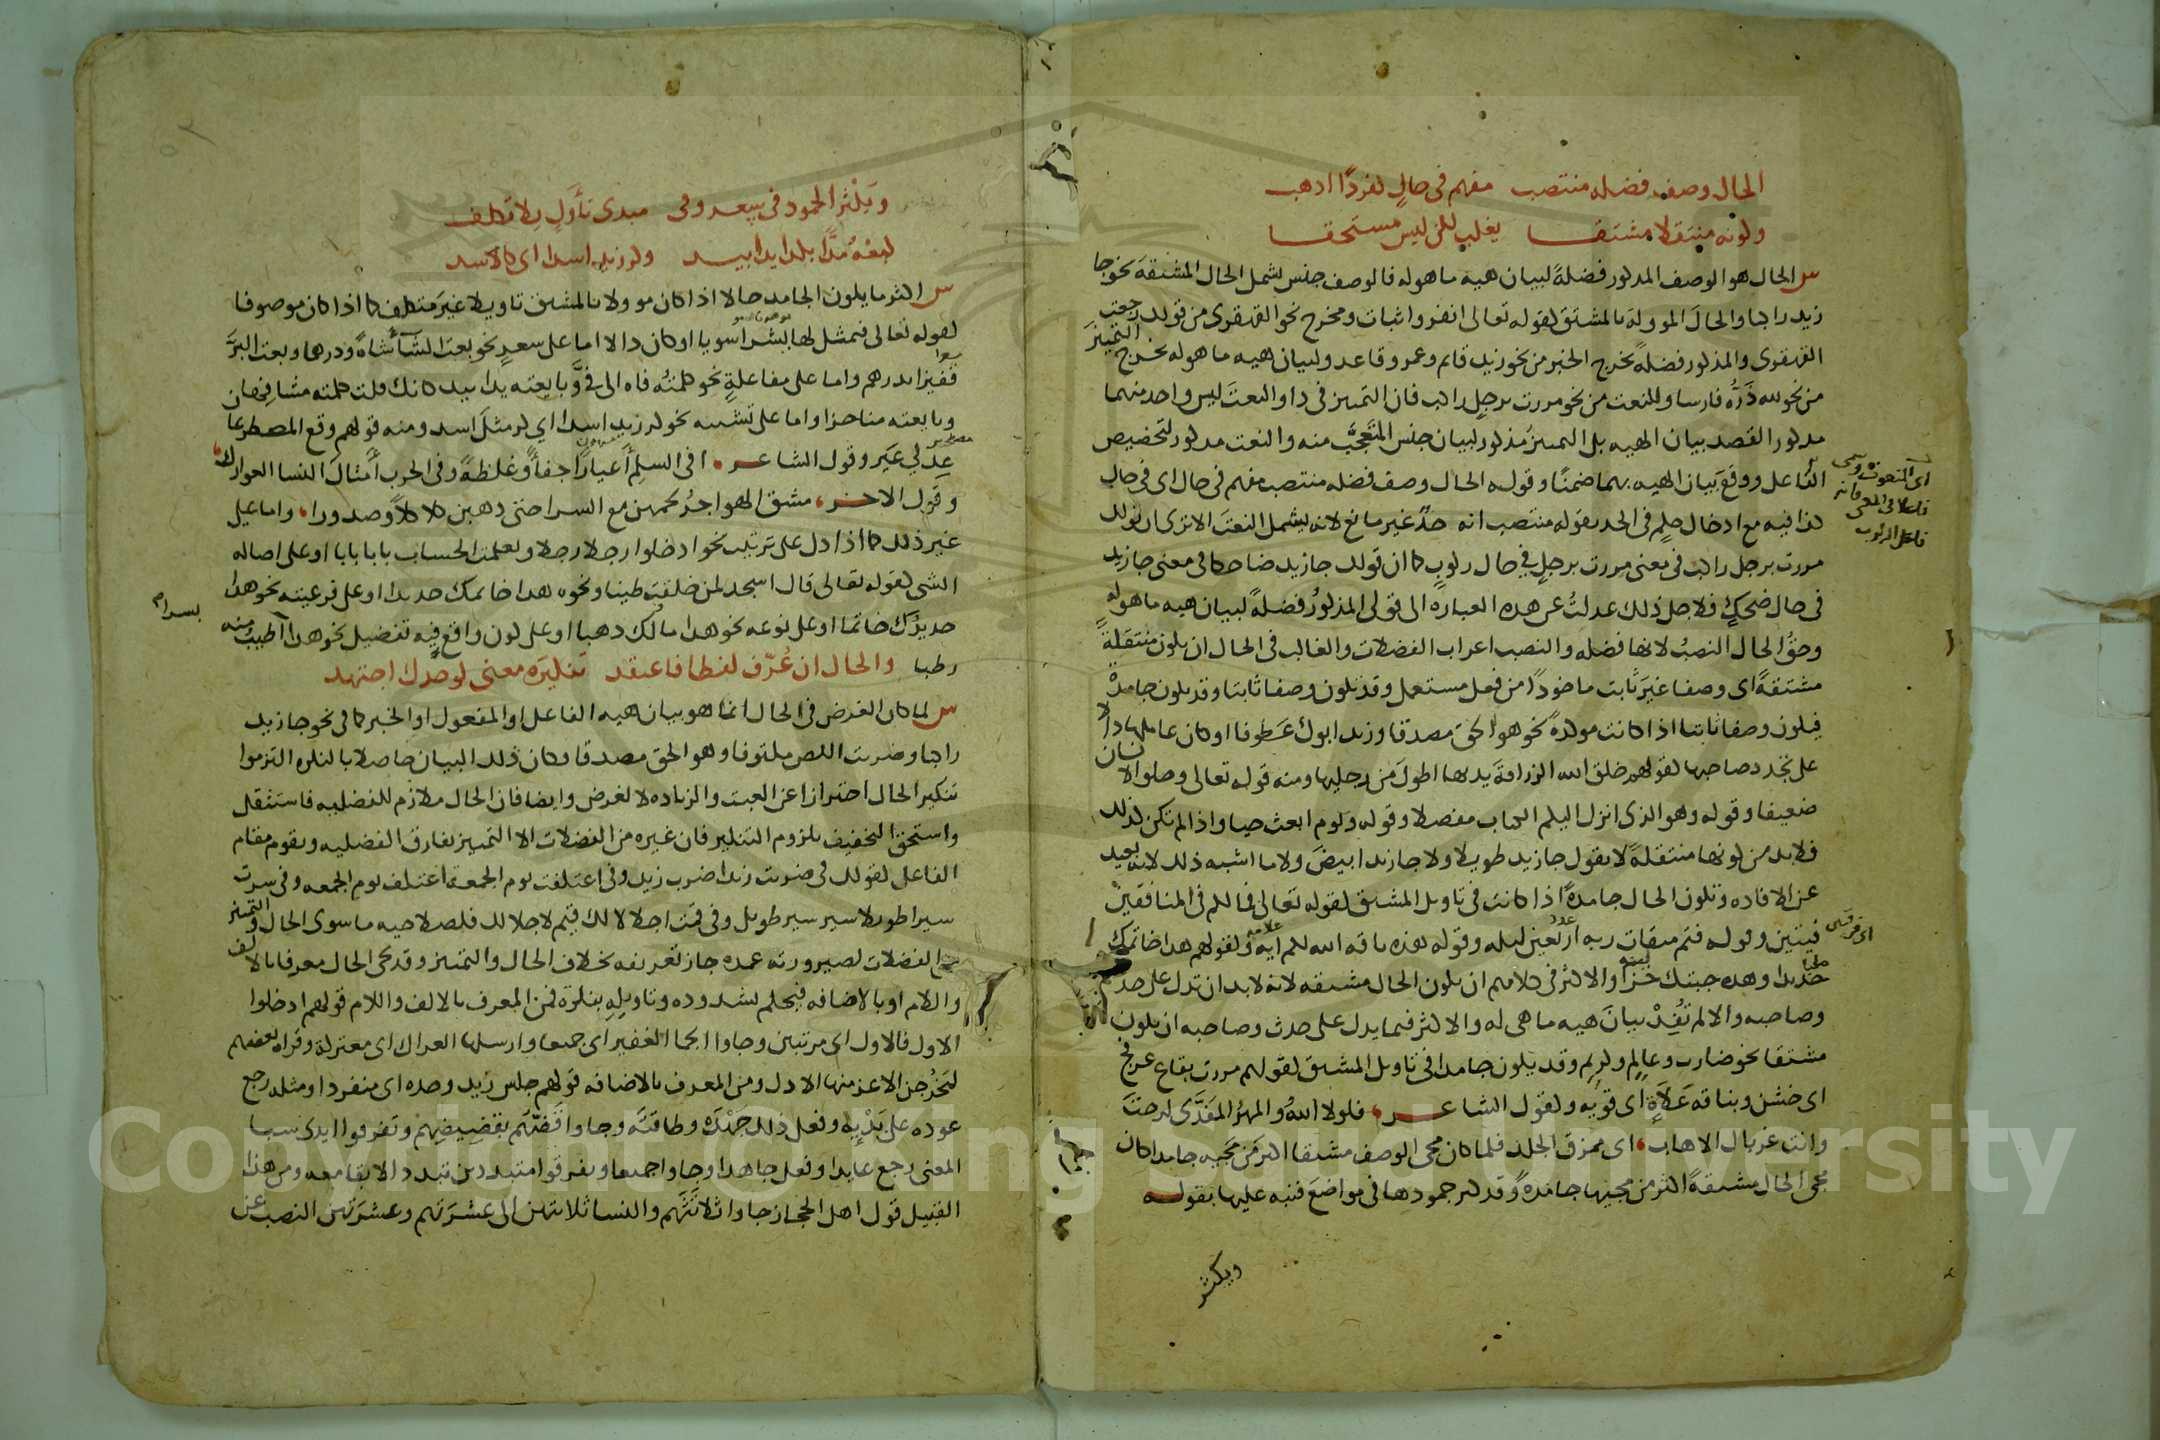 الحال وصف فضله منتصب مفهم في حال كفردا اذهب
وكونه منتقلا مشتقا يغلب لكن ليس مستحقا
س الحال هو الوصف المذكور فضلةً لبيان هيه ما هو له فالوصف جنس يشمل الحال المشتقة نحو جا
زيد راكبا والحال الموولة بالمشتق كقوله تعالى انفروا ثبات ومخرج نحو القهقرى من قولك رجعت
القهقرى والمذكور فضلةً يخرج الخبر من نحو زيد قايم وعمرو قاعد ولبيان هيه ما هو له يخرج التمييز
من نحو لله دَرُّهُ فارسا والنعت من نحو مررت برجل راكب فان التمييز في ذا والنعت ليس واحد منهما
مذكور القصد بيان الهيه بل التمييز مذكور لبيان جنس المتعجَّب منه والنعت مذكور لتخصيص
الفاعل ووقع بيان الهيه بهما ضمنًا وقوله الحال وصف فضله منتصب مفهم في حال اي في حال
كذا فيه مع ادخال حكم في الحد بقوله منتصب انه حدٌ غير مانع لانه يشمل النعت الا ترى ان قولك
مررت برجل راكب في معنى مررت برجل في حال ركوب كما ان قولك جا زيد ضاحكا في معنى جا زيد
في حال ضحك فلاجل ذلك عدلتُ عن هذه العباره الى قولي المذكورُ فضلةً لبيان هيه ما هو له
وحقُّ الحال النصبُ لانها فضله والنصب اعراب الفضلات والغالب في الحال ان يكون منتقلةً
مشتقةً اي وصفا غيرَ ثابت ماخوذًا من فعل مستعمل وقد يكون وصفا ثابتا وقد يكون جامدةً
فيكون وصفا ثابتا اذا كانت موكدةً نحو هو الحق مصدقا وزيد ابوك عطوفا او كان عاملها دالا
على تجدد صاحبها كقولهم خلق الله الزرافةَ يديها اطولَ من رجليها ومنه قوله تعالى وخلق الانسان
ضعيفا وقوله وهو الذي انزل اليكم الكتاب مفصلا وقوله ويوم ابعث حيا واذا لم تكن كذلك
فلا بد من كونها منتقلةً لا يقول جا زيد طويلا ولا جا زيد ابيض ولا ما اشبه ذلك لانه بعيد
عن الافاده وتكون الحال جامدةً اذا كانت في تاويل المشتق كقوله تعالى فما لكم في المنافقين
فيتين وقوله فتم ميقات ربه اربعين ليله وقوله هذه ناقه الله لكم ايه وكقولهم هذا خاتمك
حديدا وهذه جبتك خزا والاكثر في كلامهم ان يكون الحال مشتقه لانه لا بد ان تدل على حدث
وصاحبه والا لم تُفِدْ بيانَ هيه ما هي له والاكثر فيما يدل على حدث وصاحبه ان يكون
مشتقا نحو ضارب وعالم وكريم وقد يكون جامدا في تاويل المشتق كقولهم مررت بقاع عرفج
اي خشن وبناقه عَلاةٍ اي قويه وكقول الشاعر فلولا اللهُ والمهرُ المفدَّى لرحتَ
وانت غربال الاهاب اي ممزق الجلد فلما كان مجي الوصف مشتقا اكثر من مجيه جامدا كان
مجي الحال مشتقةً اكثر من مجيئها جامدةً وقد كثر جمودها في مواضع فنبه عليها بقوله
ويكثر
اي المنعوت وسمي
فاعلا في المعنى لانه
فاعل الركوب
اي فرقتين
علامة
ويكثر الجمود في سعر وفي مبدي تأوّل بلا تكلف
كبعه مُدًّا بكذا يدا بيد وكر زيد اسدا اي كاسد
س اكثر ما يكون الجامد حالا اذا كان موولا بالمشتق تاويلا غيرَ متكلف كما اذا كان موصوفا
كقوله تعالى فتمثل لها بشرا سويا او كان دالا اما على سعرٍ نحو بعت الشآ شاةً ودرهما وبعت البرَّ
قفيزا بدرهم واما على مفاعلةٍ نحو كلمتُه فاه الى فيَّ وبايعته يدا بيد كانك قلت كلمته مشافهان
وبايعته مناجزا واما على تشبيه نحو كر زيد اسدا اي كر مثلَ اسد ومنه قولهم وقع المصطرعان
عِدلي عير وقول الشاعر افي السلم اعيارًا جفاً وغلظةً وفي الحرب أمثالَ النسا العوارك
وقول الاخر مشق الهواجرُ لحمهن مع السرا حتى ذهبن كلاكلاً وصدورا واما على
غير ذلك كما اذا دل على ترتيب نحو ادخلوا رجلا رجلا وتعلمت الحساب بابا بابا او على اصاله
الشي كقوله تعالى قال ااسجد لمن خلقت طينا ونحوه هذا خاتمك حديدا او على فرعيته نحو هذا
حديدُكَ خاتما او على نوعه نحو هذا مالُك ذهبا او على كون واقع فيه تفضيل نحو هذا بسرا اطيب منه
رطبا والحال ان عُرّف لفظا فاعتقد تنكيرَه معنى كوحدك اجتهد
س لما كان الغرض في الحال انما هو بيان هيه الفاعل او المفعول او الخبر كما في نحو جا زيد
راكبا وضربت اللص مكتوفا وهو الحق مصدقا وكان ذلك البيان حاصلا بالنكره التزموا
تنكير الحال احترازا عن العبث والزياده لا لغرض وايضا فان الحال ملازم للفضليه فاستثقل
واستحق التخفيف بلزوم التنكير فان غيره من الفضلات الا التمييز يفارق الفضليه ويقوم مقام
الفاعل كقولك في ضربت زيدا ضرب زيد وفي اعتكفت يوم الجمعة اعتكف يوم الجمعه وفي سرت
سيرا طويلا سير سير طويل وفي قمت اجلالا لك قيم لاجلالك فلصلاحيه ما سوى الحال والتمييز
من الفضلات لصيرورته عمده جاز تعريفه بخلاف الحال والتمييز وقد يجي الحال معرفا بالالف
واللام او بالاضافه فيحكم بشذوذه وتاويله بنكرة فمن المعرف بالالف واللام قولهم ادخلوا
الاول فالاول اي مرتبين وجاوا الجما الغفير اي جميعا وارسلها العراك اي معتركة وقراه بعضهم
ليَخرُجن الاعز منها الاذل ومن المعرف بالاضافه قولهم جلس زيد وحده اي منفردا ومثله رجع
عوده على بَدْيِه وفعل ذلك جَهْدَه وطاقتَه وجاوا قَضَّهم بقضيضِهم وتفرقوا ايدي سبا
المعنى رجع عايدا وفعل جاهدا وجاوا جميعا وتفرقوا متبددين تبددا لا بقا معه ومن هذا
القبيل قول اهل الحجاز جاوا ثلاثَتَهم والنسا ثلاثتهن الى عشرتَهم وعشرَتَهن النصب عن
Copyright © King Saud University